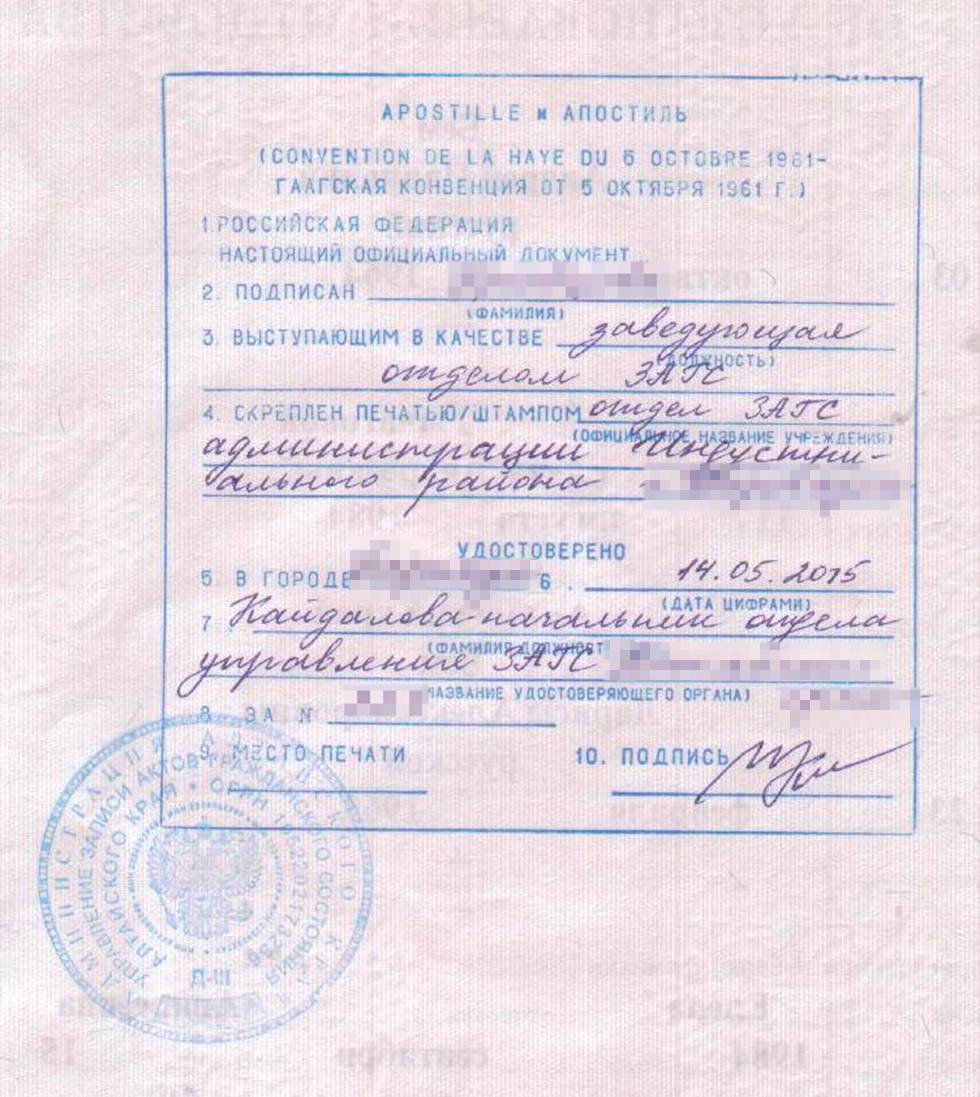 APOSTILLE и АПОСТИЛЬ
(CONVENTION DE LA HAYE DU 5 OCTOBRE 1961-
ГААГСКАЯ КОНВЕНЦИЯ ОТ 5 ОКТЯБРЯ 1961 Г.)
1.РОССИЙСКАЯ ФЕДЕРАЦИЯ
НАСТОЯЩИЙ ОФИЦИАЛЬНЫЙ ДОКУМЕНТ
2. ПОДПИСАН
(ФАМИЛИЯ)
3. ВЫСТУПАЮЩИМ В КАЧЕСТВЕ заведующая
(ДОЛЖНОСТЬ)
отделом ЗАГС
4. СКРЕПЛЕН ПЕЧАТЬЮ/ШТАМПОМ отдел ЗАГС
(ОФИЦИАЛЬНОЕ НАЗВАНИЕ УЧРЕЖДЕНИЯ)
администрации Индустри-
ального района
УДОСТОВЕРЕНО
5. В ГОРОДЕ 6. 14.05.2015
(ДАТА ЦИФРАМИ)
7. Кайдалова-начальник отдела
(ФАМИЛИЯ ДОЛЖНОСТ
управления ЗАГС
НАЗВАНИЕ УДОСТОВЕРЯЮЩЕГО ОРГАНА)
8. ЗА N
9. МЕСТО ПЕЧАТИ 10. ПОДПИСЬ
АДМИНИСТРАЦИЯ АЛТАЙСКОГО КРАЯ
УПРАВЛЕНИЕ ЗАПИСИ АКТОВ ГРАЖДАНСКОГО СОСТОЯНИЯ
АЛТАЙСКОГО КРАЯ • ОГРН
Д-III